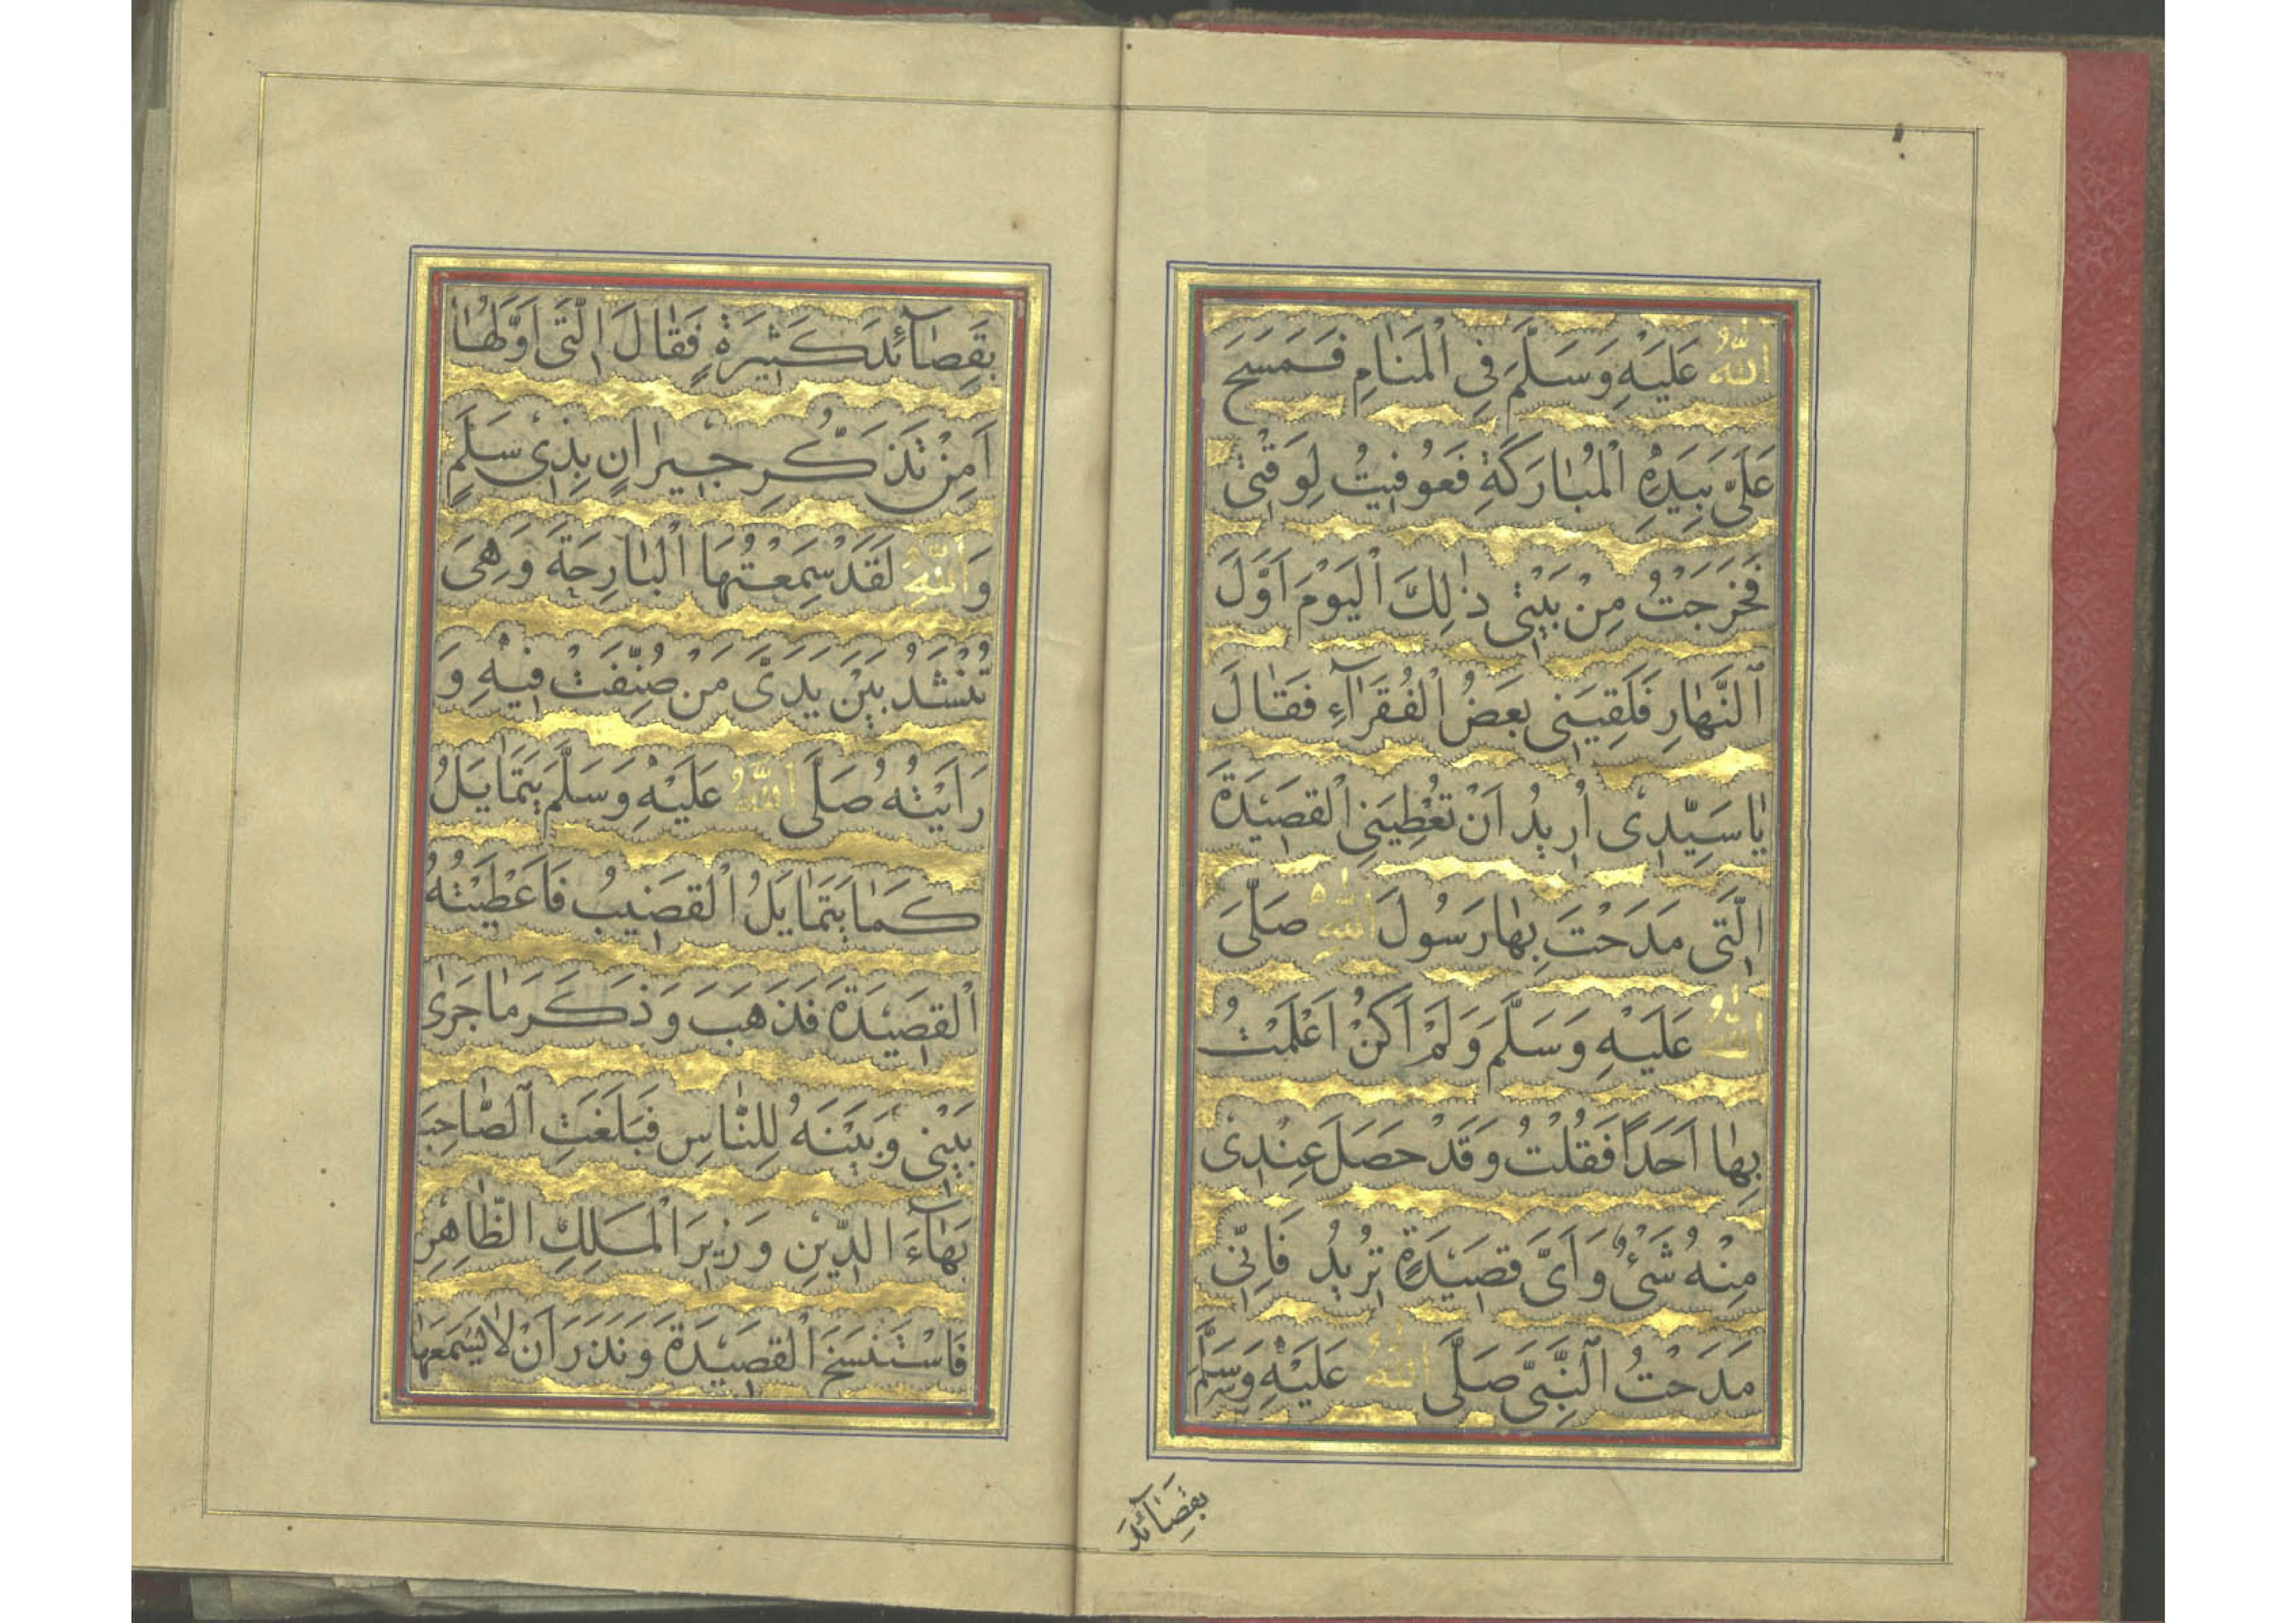 اللّٰهُ عَلَيْهِ وَسَلَّمَ فِى الْمَنٰامِ فَمَسَحَ
عَلَىَّ بِيَدِهِ الْمُبٰارَكَةِ فَعُوفِيتُ لِوَقْتِى
فَخَرَجْتُ مِنْ بَيْتِى ذٰلِكَ الْيَوْمَ اَوَّلَ
النَّهٰارِ فَلَقِيَنِى بَعْضُ الْفُقَرٰآءِ فَقٰالَ
يٰا سَيِّدِى اُرِيدُ اَنْ تُعْطِيَنِى الْقَصِيْدَةَ
الَّتِى مَدَحْتَ بِهٰا رَسُولَ اللّٰهِ صَلَّىَ
اللّٰهُ عَلَيْهِ وَسَلَّمَ وَلَمْ اَكُنْ اَعْلَمْتُ
بِهٰا اَحَدًا فَقُلْتُ وَقَدْ حَصَلَ عِنْدِى
مِنْهُ شَىْءٌ وَاَىَّ قَصِيْدَةٍ تُرِيْدُ فَاِنِّى
مَدَحْتُ النَّبِىَّ صَلَّى اللّٰهُ عَلَيْهِ وَسَلَّمَ
بقَصٰآئِدَ
بِقَصٰآئِدَ كَثِيْرَةٍ فَقٰالَ الَّتِى اَوَّلُهٰا
اَمِنْ تَذَكُّرِ جِيْرٰانٍ بِذِى سَلَمٍ
وَاللّٰهِ لَقَدْ سَمِعْتُهَا الْبٰارِحَةَ وَهِىَ
تُنْشَدُ بَيْنَ يَدَىْ مَنْ صُنِّفَتْ فِيْهِ وَ
رَاَيْتُهُ صَلَّى اللّٰهُ عَلَيْهِ وَسَلَّمَ يَتَمٰايَلُ
كَمٰا يَتَمٰايَلُ الْقَضِيْبُ فَاَعْطَيْتُهُ
الْقَصِيْدَةَ فَذَهَبَ وَذَكَرَ مٰا جَرٰى
بَيْنِى وَبَيْنَهُ لِلنّٰاسِ فَبَلَغَتِ الصّٰاحِبَ
بَهٰآءَ الدِّيْنِ وَزِيْرَ الْمَلِكِ الظّٰاهِرِ
فَاسْتَنْسَخَ الْقَصِيْدَةَ وَنَذَرَ اَنْ لٰا يَسْمَعَهٰا